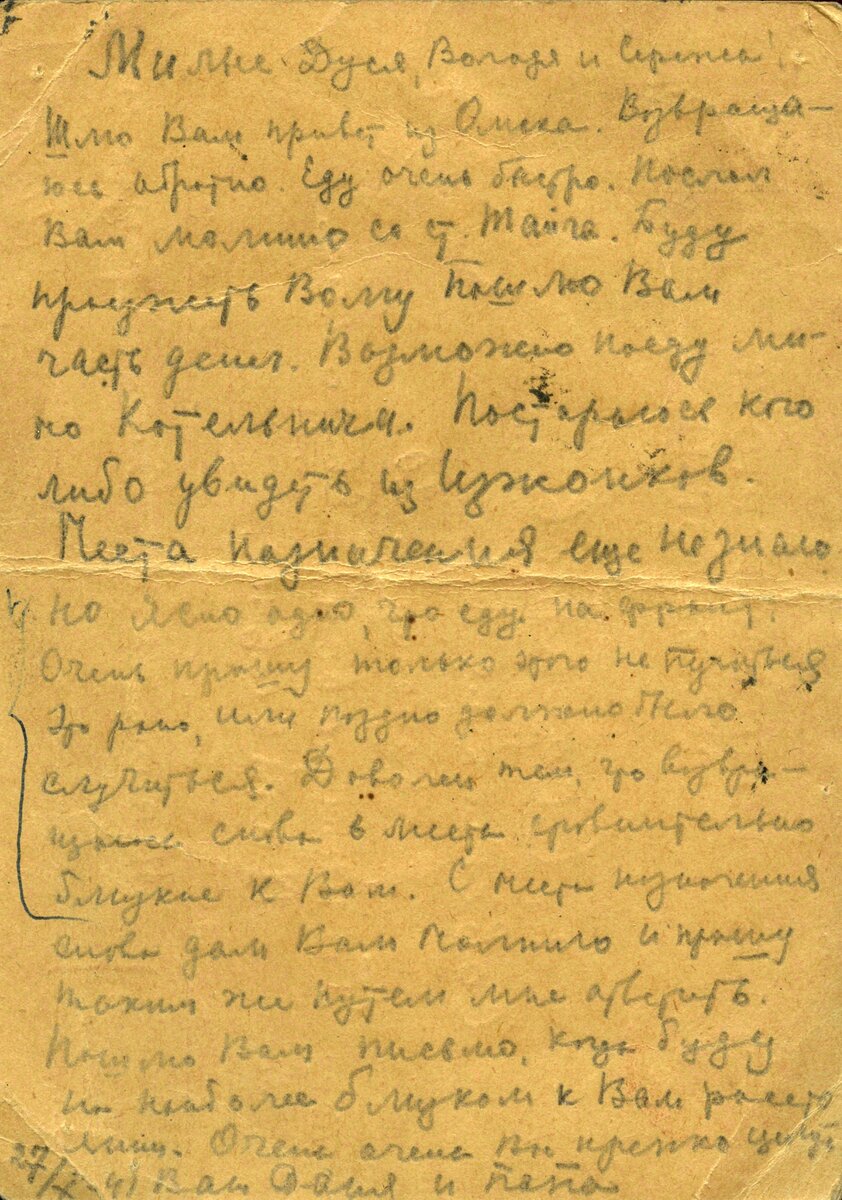 Милые Дуся, Володя и Сережа!
Шлю Вам привет из Омска. Возвраща-
юсь обратно. Еду очень быстро. Послал
Вам молнию со ст. Тайга. Буду
проезжать Волгу Пошлю Вам
часть денег. Возможно поеду ми-
мо Котельнича. Постараюсь кого
либо увидеть из
Места назначения еще не знаю
но ясно одно, что еду на фронт.
Очень прошу только этого не пугаться
Это рано, или поздно должно было
случиться. Доволен тем, что возвра-
щаюсь снова в места сравнительно
близкие к Вам. С места назначения
снова дам Вам молнию и прошу
таким же путем мне ответить.
Пошлю Вам письмо, когда буду
на наиболее близком к Вам расстоя
нии. Очень очень Вас крепко целую
27/X-41 Ваш Даня и папа